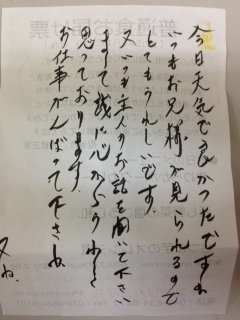 今日天気で良かったですね
いつもお兄様が見られるので
とてもうれしいです
又いつも主人のお話を聞いて下さい
まして誠に心からうれしく
思っております。
お仕事がんばって下さね
又ね。